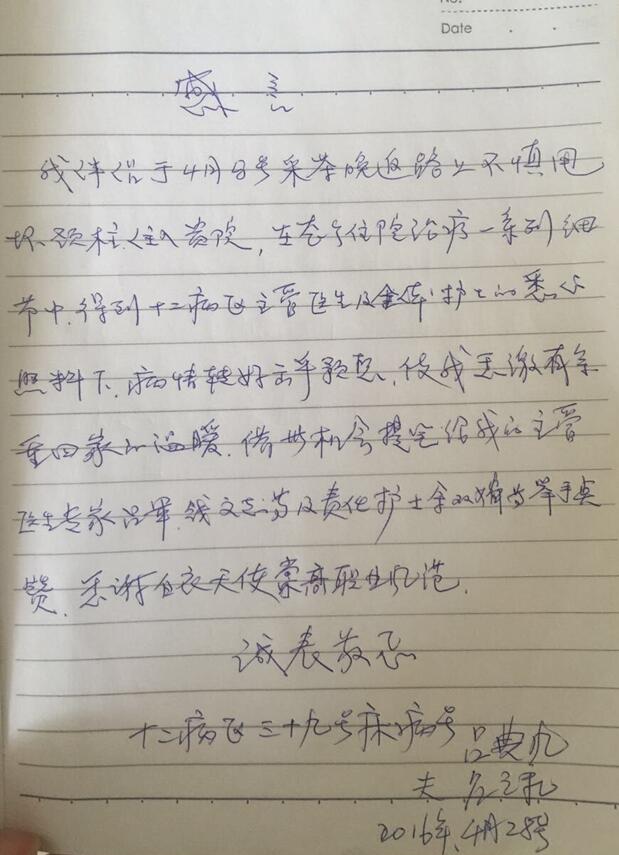 No.
Date
感
我伴侣于4月8号采茶晚返路上不慎甩
坏颈柱.住入贵院,在去了住院治疗一系列细
节中.得到十二病区主管医生及全体护士的悉心
照料下.病情转好出乎预想.使我感激有余
重回家的温暖.借此机会提笔给我的主管
医生专家吕军.钱文志等及责任护士余双 为举手点
赞.感谢白衣天使崇高职业风范.
诚表敬意
十二病区三十九号床病号
吕典
夫
2016年.4月28号